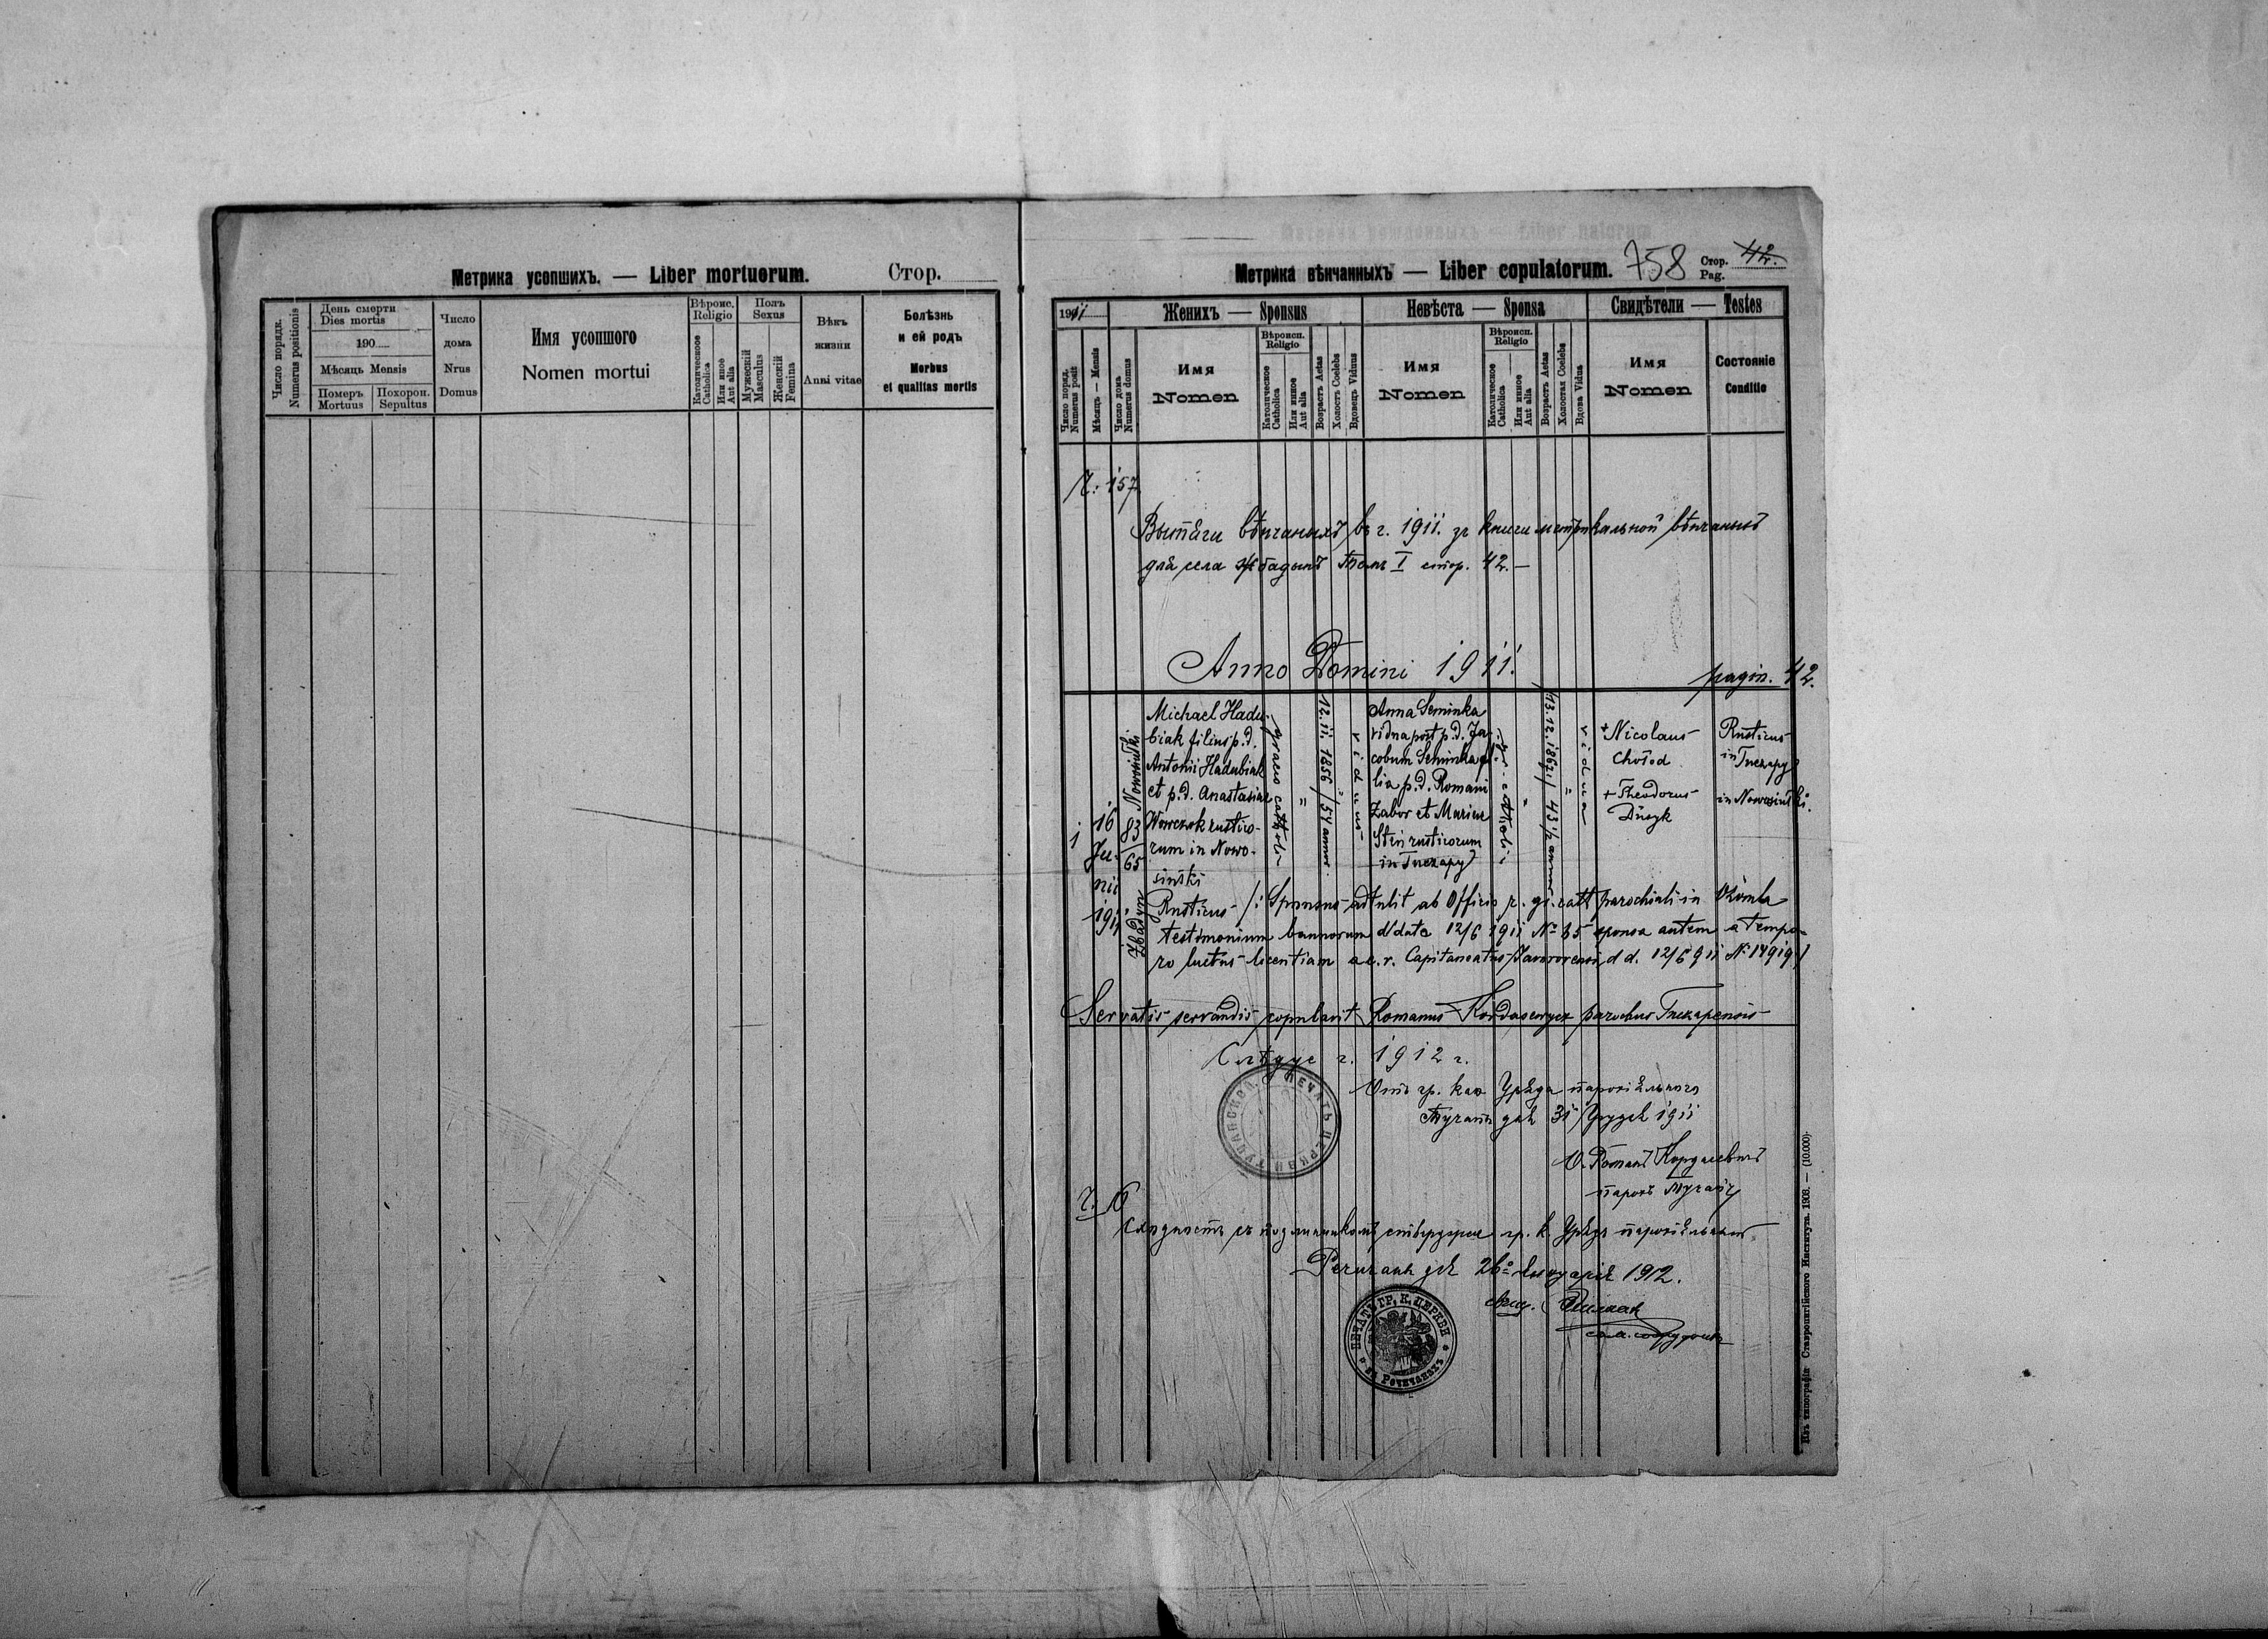 Метрика усопшихъ. — Liber mortuorum.
Стор.
Число порядк.
Numerus positionis
День смерти
Dies mortis
190
Мѣсяць Mensis
Померъ
Mortuus
Похорон.
Sepultus
Число
дома
Nrus
Domus
Имя усопшого
Nomen mortui
Вѣроис.
Religio
Католическоое
Catholica
Или иное
Aut alia
Полъ
Sexus
Мужескій
Masculus
Женскій
Femina
Вѣкъ
жизни
Anni vitae
Болѣзнь
и ей родъ
Morbus
et qualitas mortis
Метрика вѣнчанныхъ — Liber copulatorum.
758
Стор.
Pag.
42.
1911
Женихъ — Sponsus
Невѣста — Sponsa
Свидѣтели — Testes
Число поряд.
Numerus posit
Мѣсяць — Mensis
Число дома
Numerus domus
Имя
Nomen
Вѣроисп.
Religio
Католическое
Catholica
Или иное
Aut alia
Возрастъ Aetas
Холостъ Coelebs
Вдовець Viduus
Имя
Nomen
Вѣроисп.
Religio
Католическое
Catholica
Или иное
Aut alia
Возрастъ Aetas
Холостая Coelebs
Вдова Vidua
Имя
Nomen
Состояніе
Conditio
Ч: 157
вѣнчаныхъ въ г. 1911. зъ книги метрикальной вѣнчаныхъ
для села Томъ I стор. 42.—
Anno Domini 1911.
pagin. 42.
1
16
Ju-
nii
1911
Nowosiułki
83
65
Zbadyn
Michael Hadu-
biak filius p.d.
Antonii Hadubiak
et p.d. Anastasiae
Wowczok rustico-
rum in Nowo-
siułki
Rusticus
graeco cathol.
"
12. 11. 1856 / 54 annor.
"
viduus
Anna Seminka
vidua post p.d. Ja-
cobum Seminka fi-
lia p.d. Romani
Zabor et Mariae
Stein rusticorum
in Tuczapy
"
13. 12. 1867 / 43 1/2 annor
"
vidua
+ Nicolaus
Chołod
+ Theodorus
Dusyk
Rusticus
in Tuczapy
in Nowosiułki.
/: Sponsus adtulit ab Officio r. gr. catt parochiali in Ożomla
testimonium bannorum d/dato 12/6 1911 No 35 sponsa autem a tempo-
re luctus licentiam a c. r. Capitaneatus Javoroviensi d d. 12/6 911 N. 14919 /
Servatis servandis copulavit Romanus Kordasewycz parochus Tuczapensis
Слѣдує г. 1912 г.
Отъ гр. кат Урядa парохіяльного
Тучапы дня 31 Грудня 1911
О. Романъ Кордасевичъ
парохъ Тучапъ
ПЕЧАТЬ ЦЕРКВИ
Ч. 16
Сходность съ подлинникомъ стверджае гр. к. Урядъ парохіяльный
Речичаны дня 26го Януарія 1912.
ПЕЧАТЬ ГР. К. ЦЕРКВИ
въ Речичанахъ
Изъ типографіи Ставропигійского Института. 1908. — (10.000).